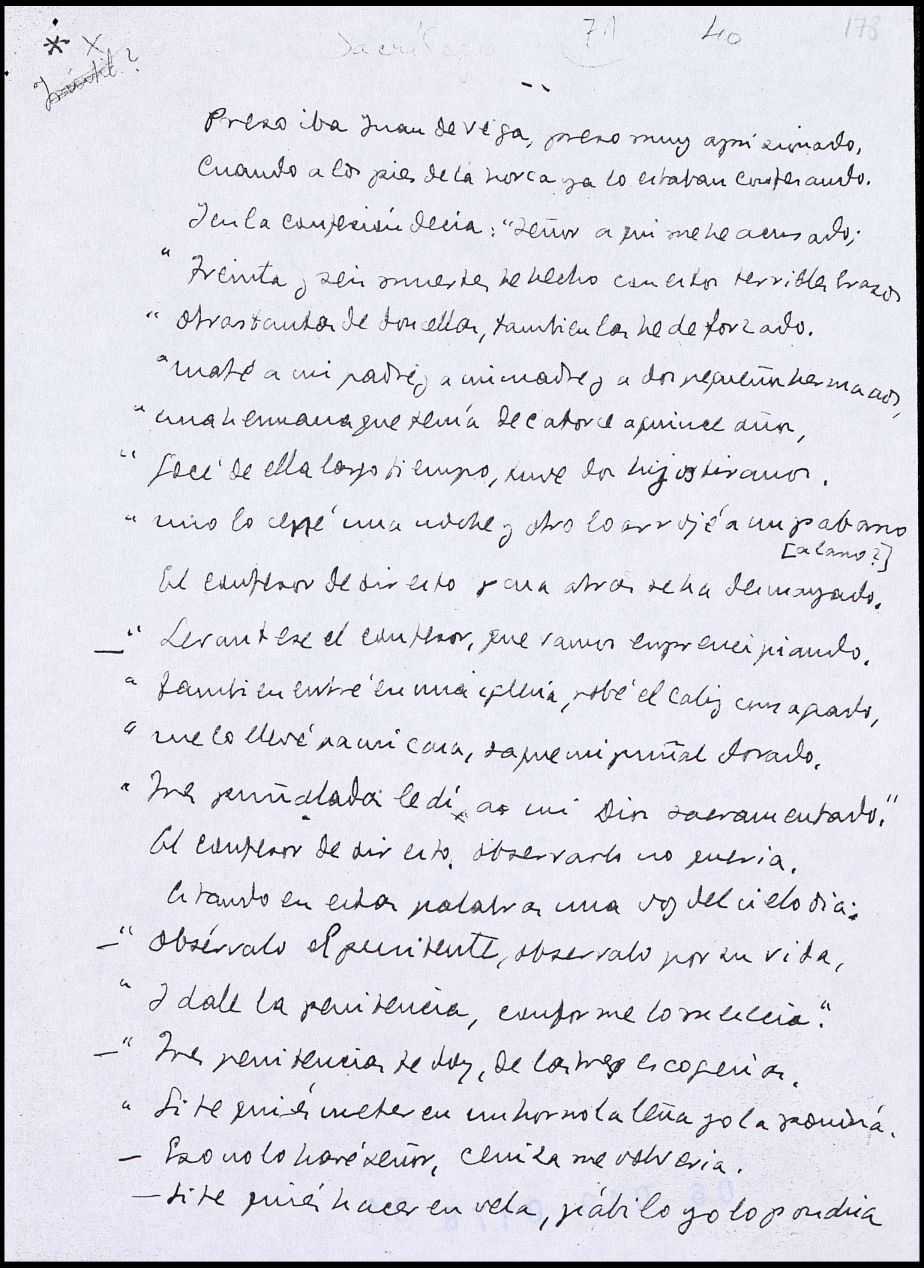 * x 71 40 178
Inútil?
--
Preso iba Juan de Vega, preso muy aprisionado,
Cuando a los pies de la horca ya lo estaban confesando.
I en la confesión decia: "Señor a qui me he acusado;
" Treinta y seis muertes he hecho con estos terribles brazos
" otras tantas de doncellas, tambien las he deforzado.
" maté a mi padre y a mi madre y a dos pequeños hermanos,
" una hermana que tenía de catorce a quince años,
" Gocé de ella largo tiempo, tuve dos hijos tiranos.
" uno lo una noche y otro lo arrojé a un pabano
[alano?]
El confesor de oir esto para atrás se ha desmayado.
—" Levantese el confesor, que vamos emprencipiando.
" tambien entré en una iglesia, robé el caliz consagrado,
" me lo llevé pa mi casa, saque mi puñal dorado.
" Tres puñaladas le dí a mi Dios sacramentado."
El confesor de oir esto, observarlo no queria.
Estando en estas palabras una voz del cielo dia:
—" Obsérvalo el penitente, observalo por su vida,
" I dale la penitencia, conforme lo merecia".
—" Tres penitencias te doy, de las tres escogerias.
" Si te quiés meter en un horno la leña yo la pondria.
— Eso no lo haré señor, ceniza me volveria.
— Si te quiés hacer en vela, pábilo yo lo pondria